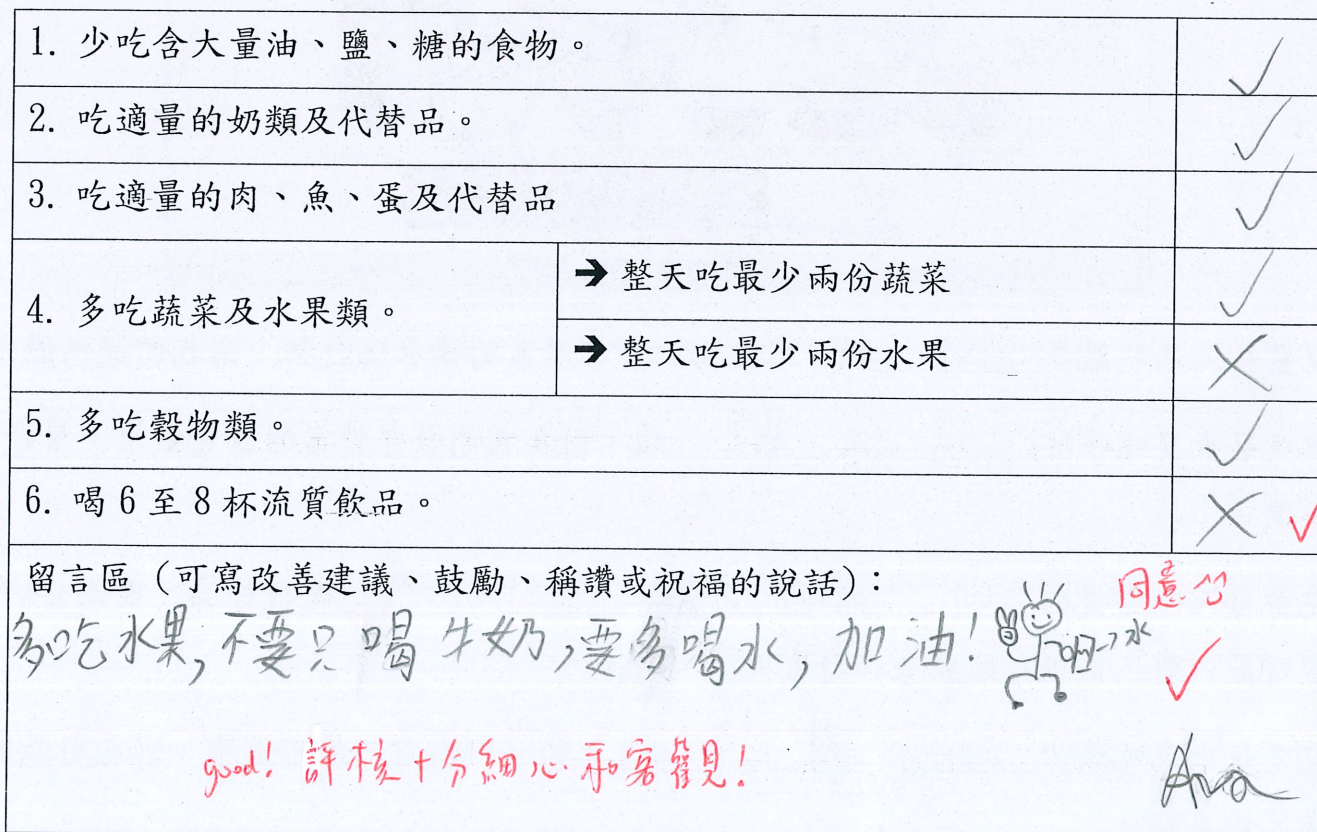 1. 少吃含大量油、鹽、糖的食物。 ✓
2. 吃適量的奶類及代替品。 ✓
3. 吃適量的肉、魚、蛋及代替品 ✓
4. 多吃蔬菜及水果類。
➔ 整天吃最少兩份蔬菜 ✓
➔ 整天吃最少兩份水果 ✗
5. 多吃穀物類。 ✓
6. 喝 6 至 8 杯流質飲品。 ✗ ✓
留言區 (可寫改善建議、鼓勵、稱讚或祝福的說話):
同意^^
多吃水果,不要只喝牛奶,要多喝水,加油! 水 ✓
good! 評核十分細心和客觀!
Ava